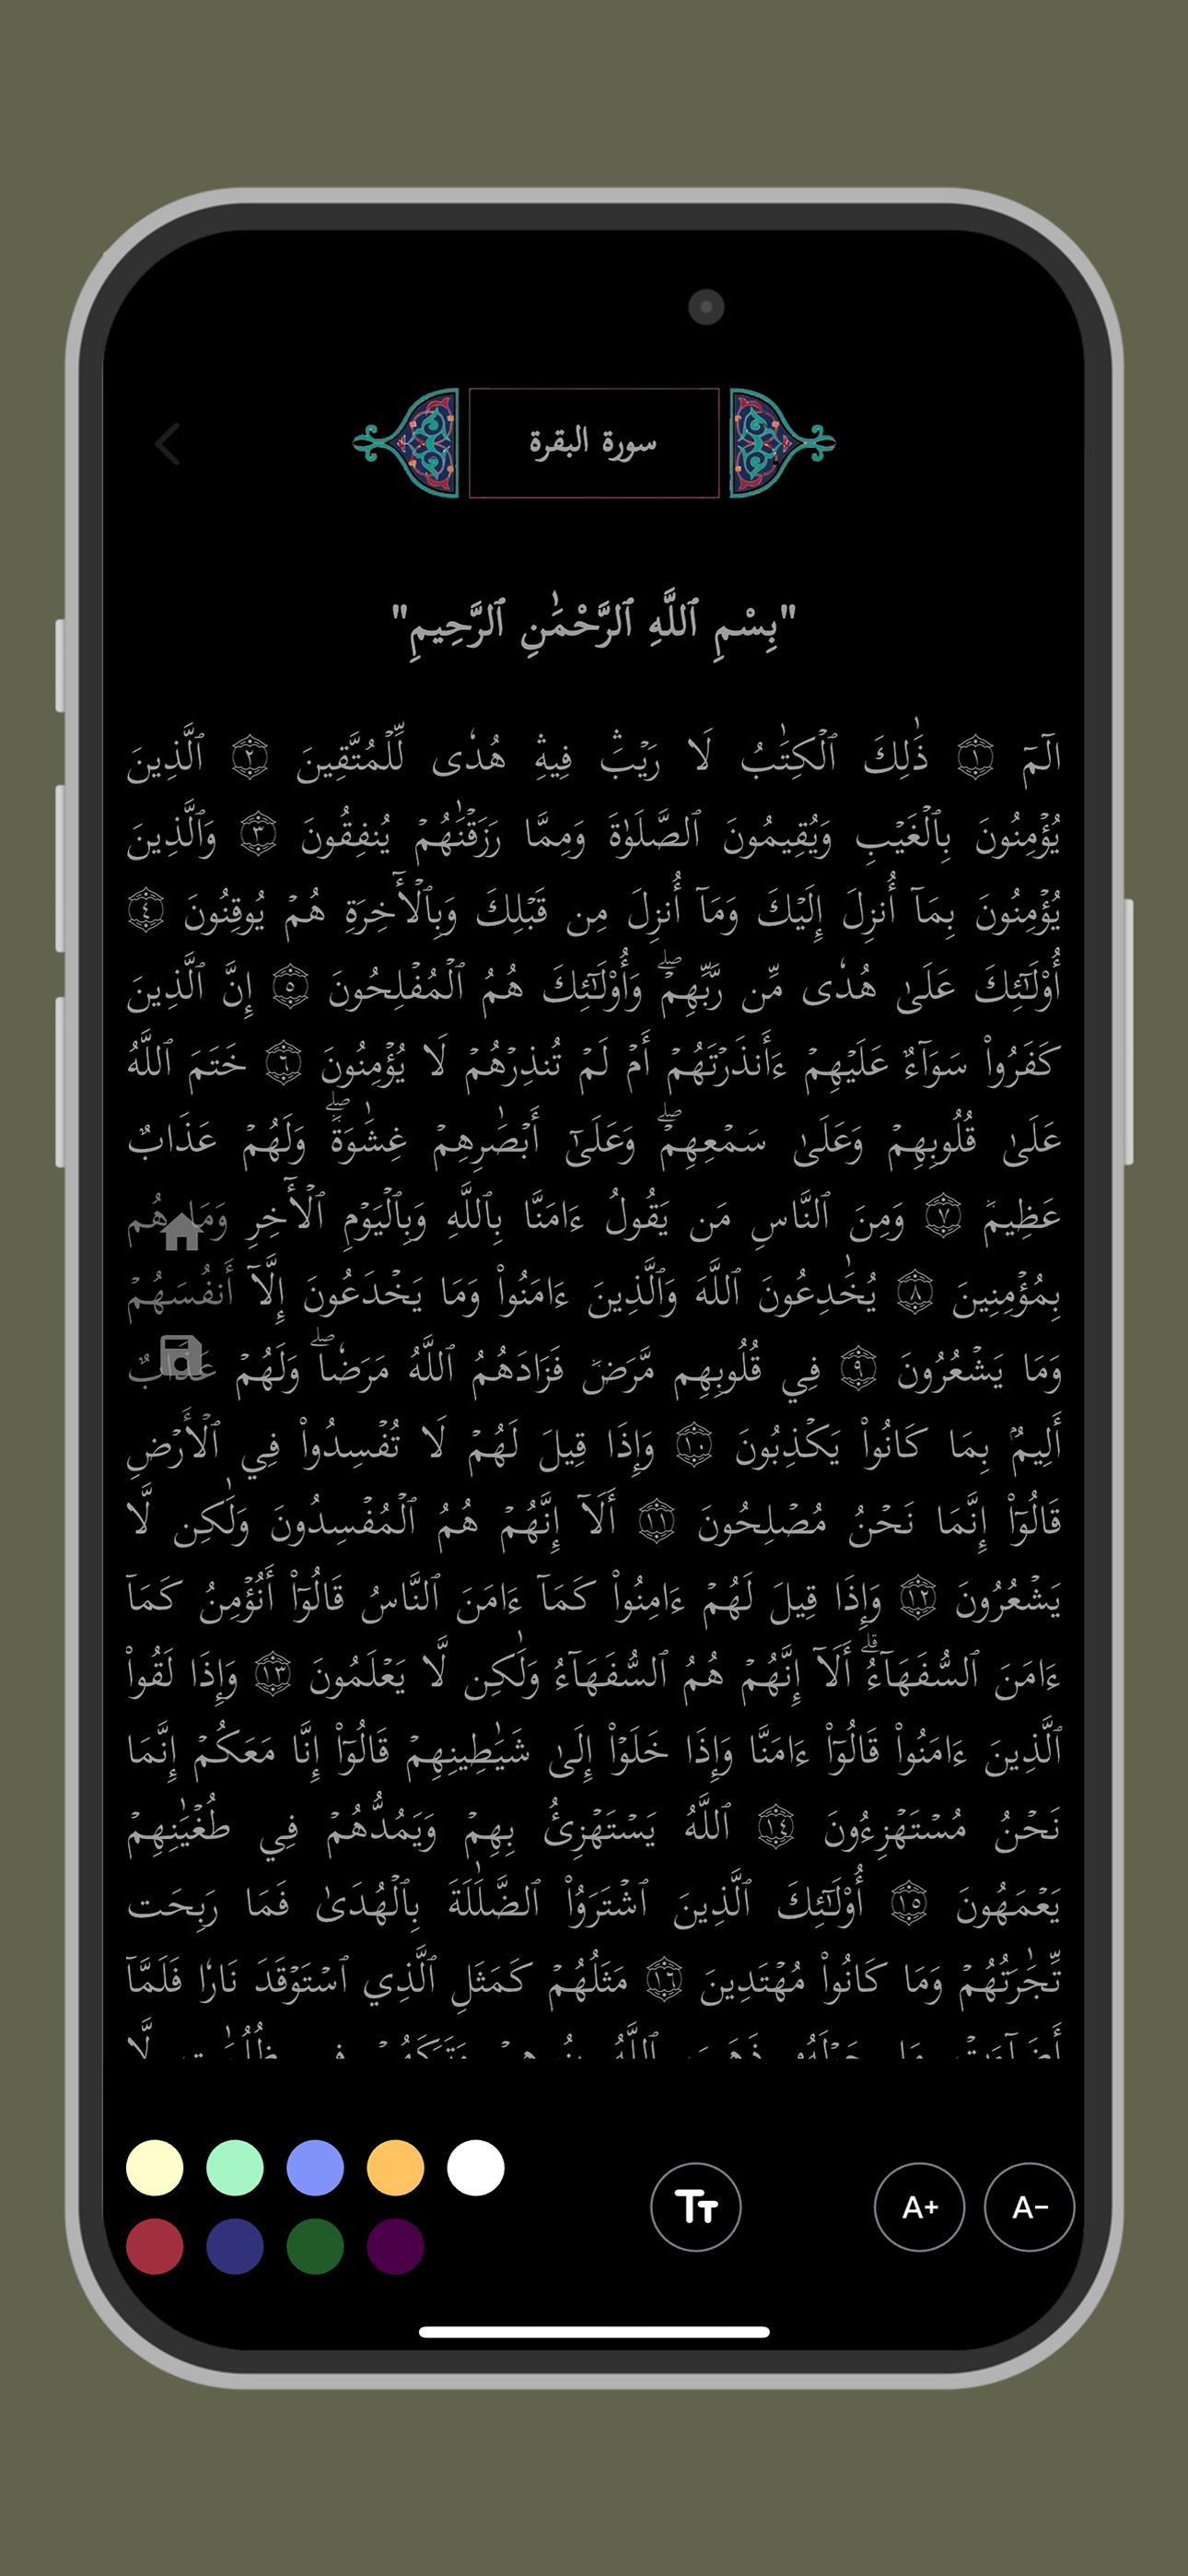 سورة البقرة
"بِسْمِ ٱللَّهِ ٱلرَّحْمَٰنِ ٱلرَّحِيمِ"
الٓمٓ ١ ذَٰلِكَ ٱلۡكِتَٰبُ لَا رَيۡبَۛ فِيهِۛ هُدٗى لِّلۡمُتَّقِينَ ٢ ٱلَّذِينَ
يُؤۡمِنُونَ بِٱلۡغَيۡبِ وَيُقِيمُونَ ٱلصَّلَوٰةَ وَمِمَّا رَزَقۡنَٰهُمۡ يُنفِقُونَ ٣ وَٱلَّذِينَ
يُؤۡمِنُونَ بِمَآ أُنزِلَ إِلَيۡكَ وَمَآ أُنزِلَ مِن قَبۡلِكَ وَبِٱلۡأٓخِرَةِ هُمۡ يُوقِنُونَ ٤
أُوْلَٰٓئِكَ عَلَىٰ هُدٗى مِّن رَّبِّهِمۡۖ وَأُوْلَٰٓئِكَ هُمُ ٱلۡمُفۡلِحُونَ ٥ إِنَّ ٱلَّذِينَ
كَفَرُواْ سَوَآءٌ عَلَيۡهِمۡ ءَأَنذَرۡتَهُمۡ أَمۡ لَمۡ تُنذِرۡهُمۡ لَا يُؤۡمِنُونَ ٦ خَتَمَ ٱللَّهُ
عَلَىٰ قُلُوبِهِمۡ وَعَلَىٰ سَمۡعِهِمۡۖ وَعَلَىٰٓ أَبۡصَٰرِهِمۡ غِشَٰوَةٞۖ وَلَهُمۡ عَذَابٌ
عَظِيمٞ ٧ وَمِنَ ٱلنَّاسِ مَن يَقُولُ ءَامَنَّا بِٱللَّهِ وَبِٱلۡيَوۡمِ ٱلۡأٓخِرِ وَمَا هُم
بِمُؤۡمِنِينَ ٨ يُخَٰدِعُونَ ٱللَّهَ وَٱلَّذِينَ ءَامَنُواْ وَمَا يَخۡدَعُونَ إِلَّآ أَنفُسَهُمۡ
وَمَا يَشۡعُرُونَ ٩ فِي قُلُوبِهِم مَّرَضٞ فَزَادَهُمُ ٱللَّهُ مَرَضٗاۖ وَلَهُمۡ عَذَابٌ
أَلِيمُۢ بِمَا كَانُواْ يَكۡذِبُونَ ١٠ وَإِذَا قِيلَ لَهُمۡ لَا تُفۡسِدُواْ فِي ٱلۡأَرۡضِ
قَالُوٓاْ إِنَّمَا نَحۡنُ مُصۡلِحُونَ ١١ أَلَآ إِنَّهُمۡ هُمُ ٱلۡمُفۡسِدُونَ وَلَٰكِن لَّا
يَشۡعُرُونَ ١٢ وَإِذَا قِيلَ لَهُمۡ ءَامِنُواْ كَمَآ ءَامَنَ ٱلنَّاسُ قَالُوٓاْ أَنُؤۡمِنُ كَمَآ
ءَامَنَ ٱلسُّفَهَآءُۗ أَلَآ إِنَّهُمۡ هُمُ ٱلسُّفَهَآءُ وَلَٰكِن لَّا يَعۡلَمُونَ ١٣ وَإِذَا لَقُواْ
ٱلَّذِينَ ءَامَنُواْ قَالُوٓاْ ءَامَنَّا وَإِذَا خَلَوۡاْ إِلَىٰ شَيَٰطِينِهِمۡ قَالُوٓاْ إِنَّا مَعَكُمۡ إِنَّمَا
نَحۡنُ مُسۡتَهۡزِءُونَ ١٤ ٱللَّهُ يَسۡتَهۡزِئُ بِهِمۡ وَيَمُدُّهُمۡ فِي طُغۡيَٰنِهِمۡ
يَعۡمَهُونَ ١٥ أُوْلَٰٓئِكَ ٱلَّذِينَ ٱشۡتَرَوُاْ ٱلضَّلَٰلَةَ بِٱلۡهُدَىٰ فَمَا رَبِحَت
تِّجَٰرَتُهُمۡ وَمَا كَانُواْ مُهۡتَدِينَ ١٦ مَثَلُهُمۡ كَمَثَلِ ٱلَّذِي ٱسۡتَوۡقَدَ نَارٗا فَلَمَّآ
Tт A+ A-